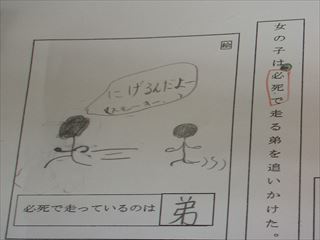 女の子は必死で走る弟を追いかけた。
絵
にげるんだよー
必死で走っているのは
弟